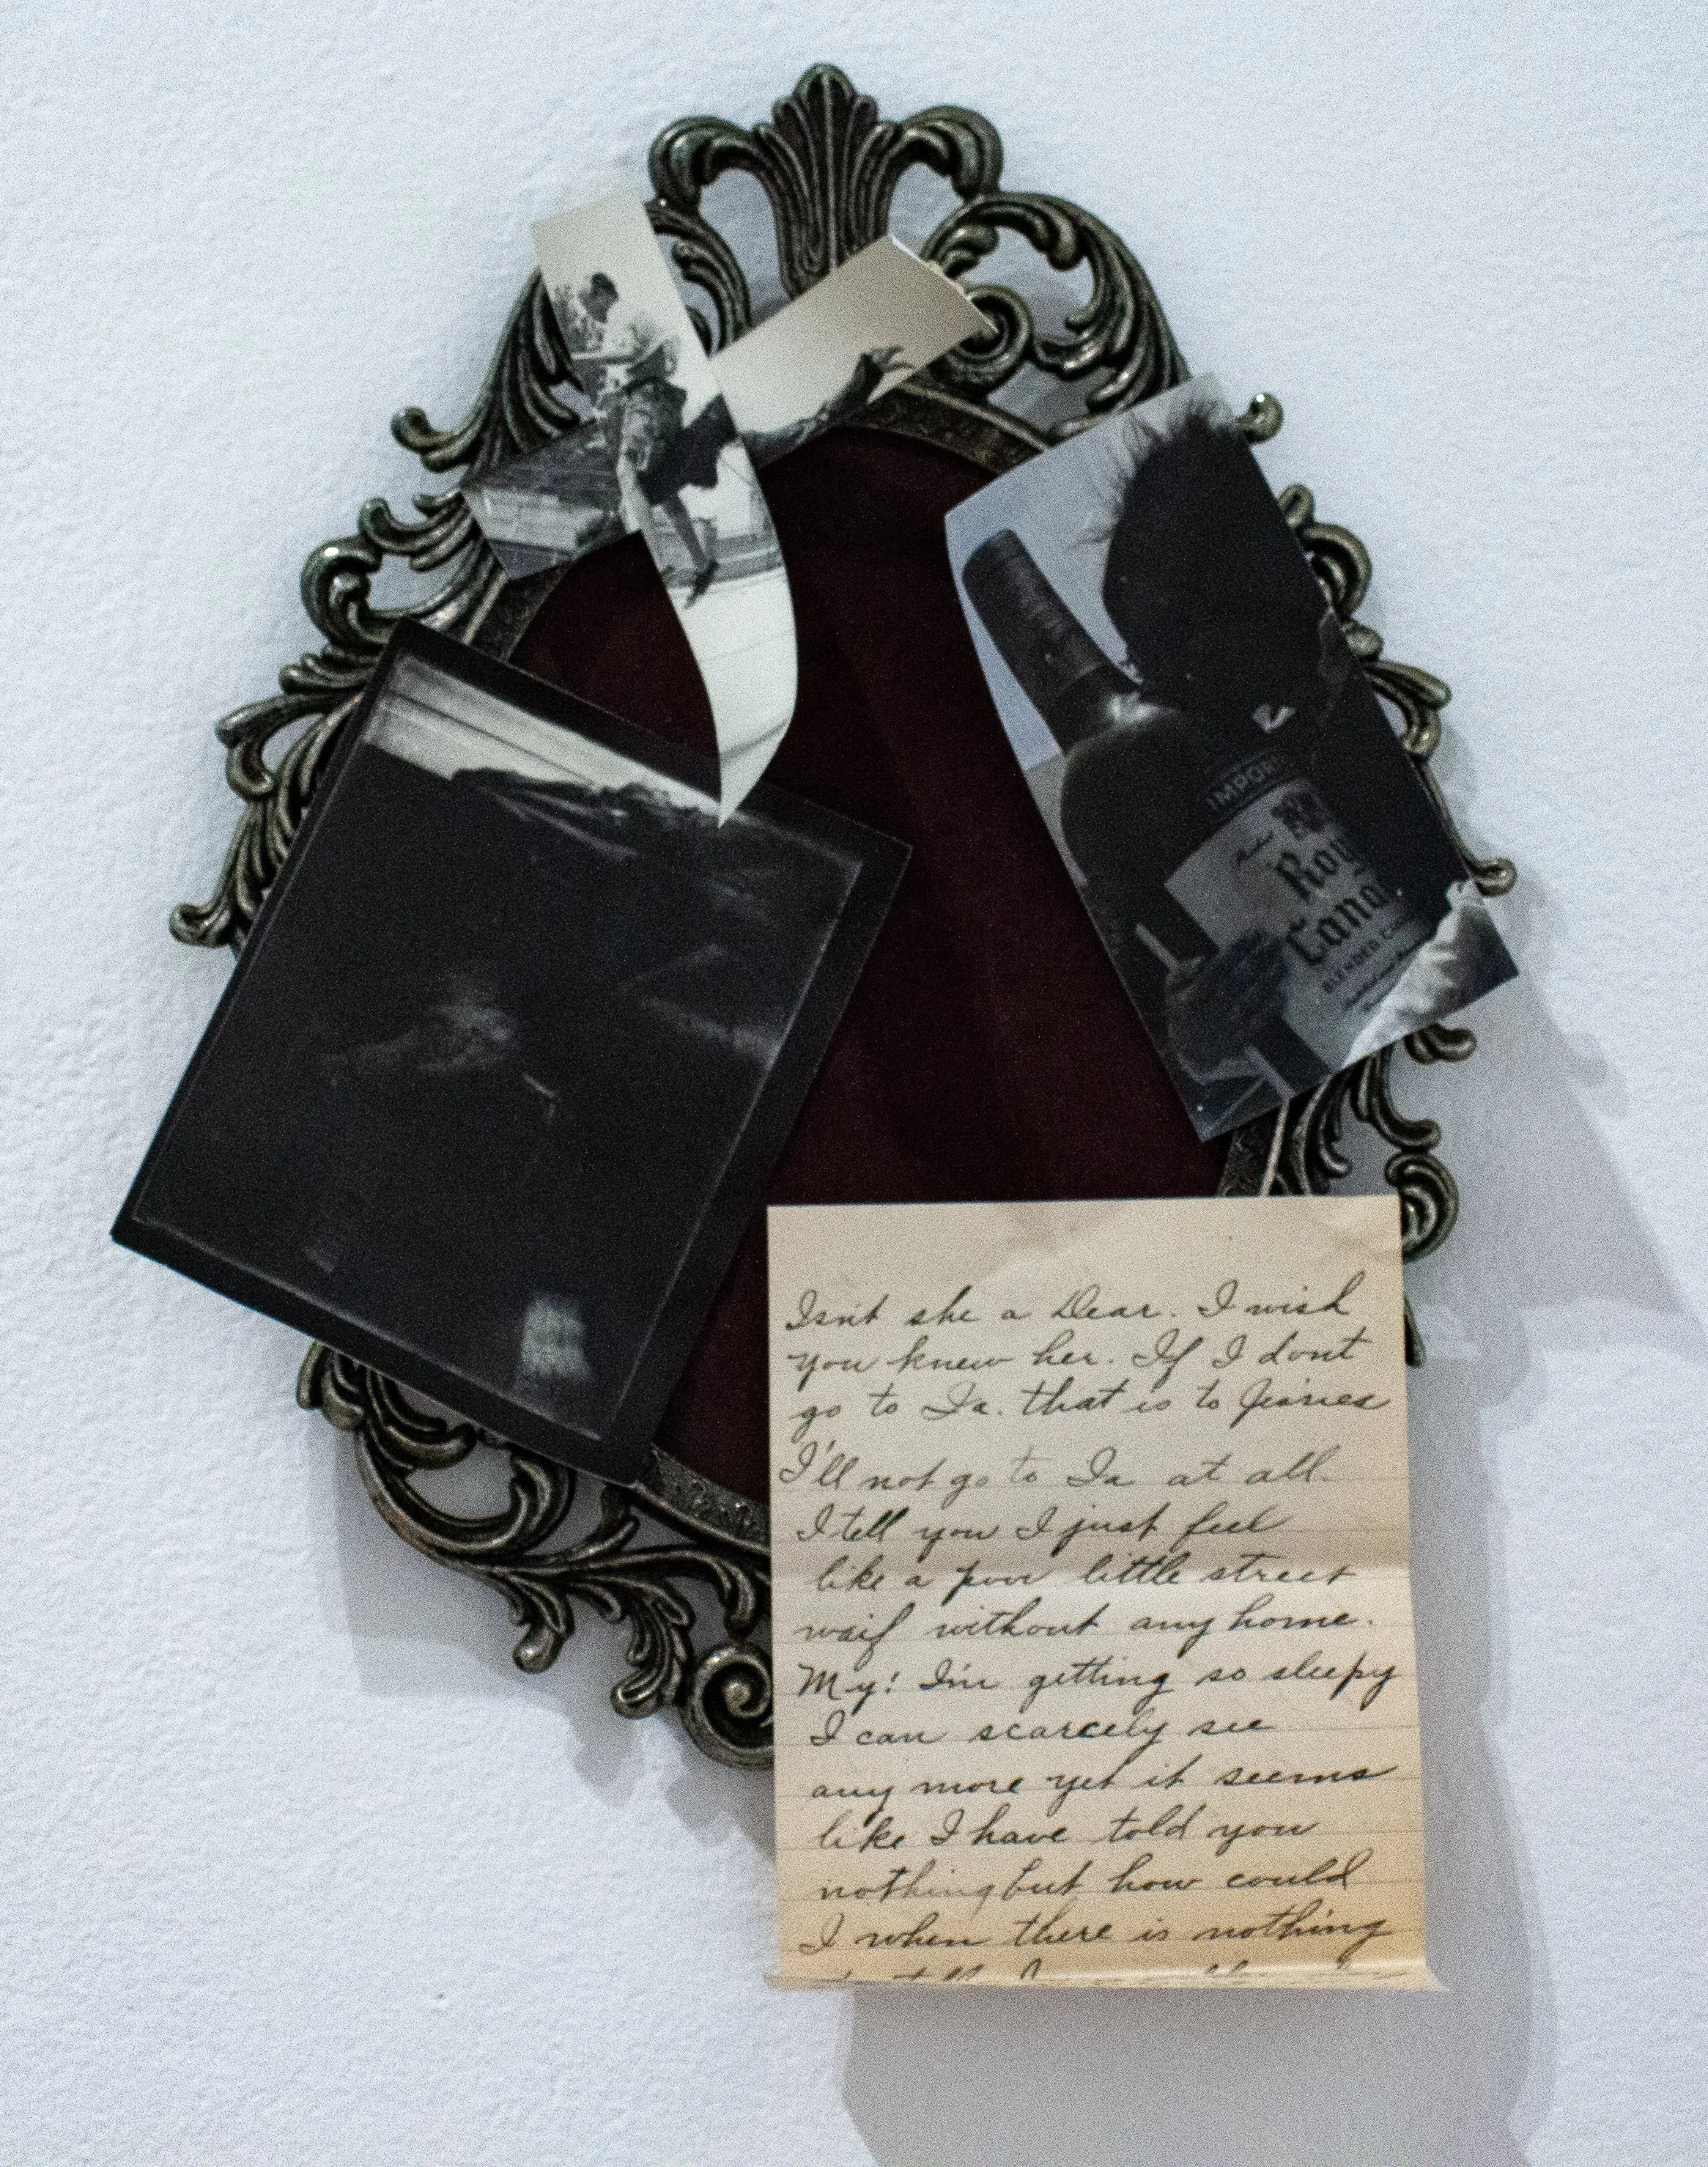 IMPOR
Roy
Cana
BLENDED
Isn't she a Dear. I wish
you knew her. If I dont
go to Ia. that is to
I'll not go to Ia at all.
I tell you I just feel
like a poor little street
waif without any home.
My! I'm getting so sleepy
I can scarcely see
any more yet it seems
like I have told you
nothing but how could
I when there is nothing